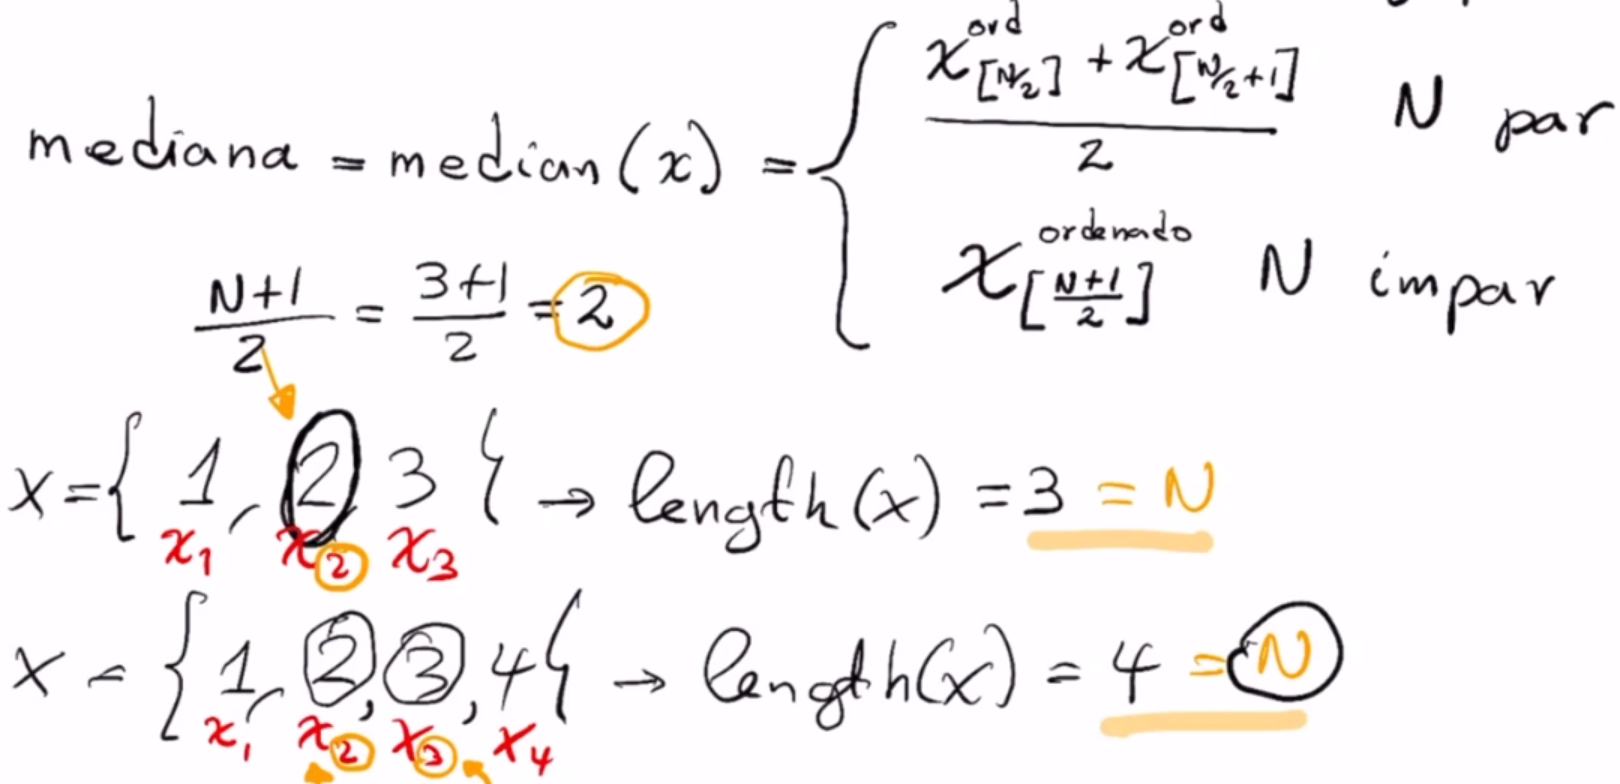 mediana = median(x) = { (x^ord_[N/2] + x^ord_[N/2+1]) / 2   N par
x^ordenado_[(N+1)/2]   N impar
(N+1)/2 = (3+1)/2 = 2
X = { 1, 2 3 } → length(x) = 3 = N
x₁ x₂ x₃
X = { 1, 2, 3, 4 } → length(x) = 4 = N
x₁ x₂ x₃ x₄